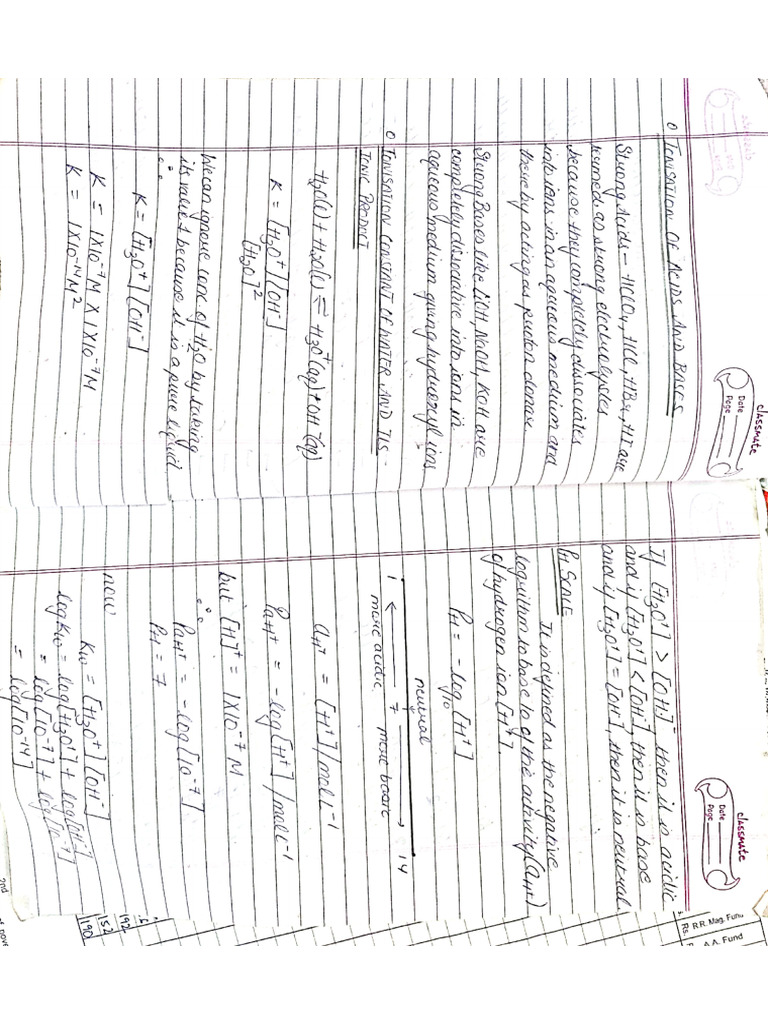 classmate
Date
Page
O IONISATION OF ACIDS AND BASES
Strong Acids - HClO4, HCl, HBr, HI are
termed as strong electrolytes
because they completely dissociates
into ions in an aqueous medium and
there by acting as proton donar
Strong Bases like LiOH, NaOH, KOH are
completely dissociative into ions in
aqueous medium giving hydroxyl ions
O IONISATION CONSTANT OF WATER AND ITS -
IONIC PRODUCT
H2O(l) + H2O(l) ⇌ H3O+(aq) + OH-(aq)
K = [H3O+][OH-]
[H2O]2
We can ignore conc of H2O by taking
its value 1 because it is a pure liquid
∴
K = [H3O+][OH-]
K = 1X10-7M X 1X10-7M
K = 1X10-14M2
classmate
Date
Page
If [H3O+] > [OH]- then it is acidic
and if [H3O+] < [OH-], then it is base
and if [H3O+] = [OH-], then it is neutral
PH SCALE
It is defined as the negative
logarithm to base 10 of the activity (aH+)
of hydrogen ion [H+].
PH = -log10 [H+]
neutral
1 7 14
more acidic more basic
aH+ = [H+]/mol L-1
PaH+ = -log[H+]/mol L-1
but [H]+ = 1X10-7 M
∴ PaH+ = -log[10-7]
PH = 7
now
Kw = [H3O+][OH-]
log Kw = log[H3O+] + log[OH-]
= log[10-7] + log[10-7]
= log[10-14]
Rs. R.R. Mag. Fund
A.A. Fund
192
152
190
2nd